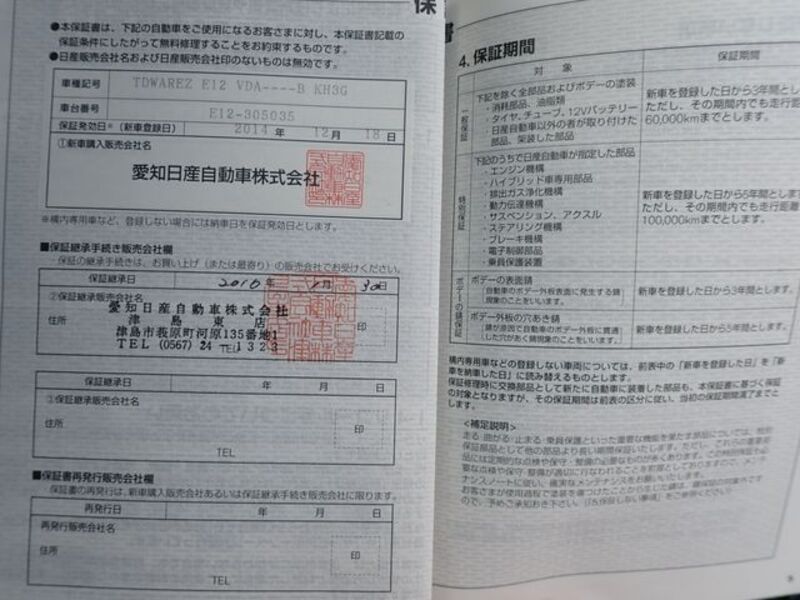 保
●本保証書は、下記の自動車をご使用になるお客さまに対し、本保証書記載の
保証条件にしたがって無料修理することをお約束するものです。
●日産販売会社名および日産販売会社印のないものは無効です。
車種記号 TDWAREZ E12 VDA----B KH3G
車台番号 E12-305035
保証発効日※(新車登録日) 2014 年 12 月 18 日
①新車購入販売会社名
愛知日産自動車株式会社
※構内専用車など、登録しない場合には納車日を保証発効日とします。
■保証継承手続き販売会社欄
・保証の継承手続きは、お買い上げ(または最寄り)の販売会社でお受けください。
保証継承日 2016 年 1 月 30 日
②保証継承販売会社名
愛知日産自動車株式会社
住所 津島東店
津島市莪原町河原135番地1
TEL (0567) 24 TEL 1323
印
保証継承日 年 月 日
③保証継承販売会社名
住所
印
TEL
■保証書再発行販売会社欄
・保証書の再発行は、新車購入販売会社あるいは保証継承手続き販売会社に限ります。
再発行日 年 月 日
再発行販売会社名
住所
印
TEL
書
4. 保証期間
対 象 保証期間
一般保証
下記を除く全部品およびボデーの塗装
・消耗部品、油脂類
・タイヤ、チューブ、12Vバッテリー
・日産自動車以外の者が取り付けた
部品、架装した部品
新車を登録した日から3年間とし
ただし、その期間内でも走行距
60,000kmまでとします。
特別保証
下記のうちで日産自動車が指定した部品
・エンジン機構
・ハイブリッド車専用部品
・排出ガス浄化機構
・動力伝達機構
・サスペンション、アクスル
・ステアリング機構
・ブレーキ機構
・電子制御部品
・乗員保護装置
新車を登録した日から5年間とし
ただし、その期間内でも走行距離
100,000kmまでとします。
ボデーの錆保証
ボデーの表面錆
自動車のボデー外板表面に発生する錆
現象のことをいいます。
新車を登録した日から3年間とします。
ボデー外板の穴あき錆
錆が原因で自動車のボデー外板に貫通
した穴があく錆現象のことをいいます。
新車を登録した日から5年間とします。
構内専用車などの登録しない車両については、前表中の「新車を登録した日」を「新
車を納車した日」に読み替えるものとします。
保証修理時に交換部品として新たに自動車に装着した部品も、本保証書に基づく保証
の対象となりますが、その保証期間は前表の区分に従い、当初の保証期間満了までと
します。
<補足説明>
走る・曲がる・止まる・乗員保護といった重要な機能を果たす部品については、特別